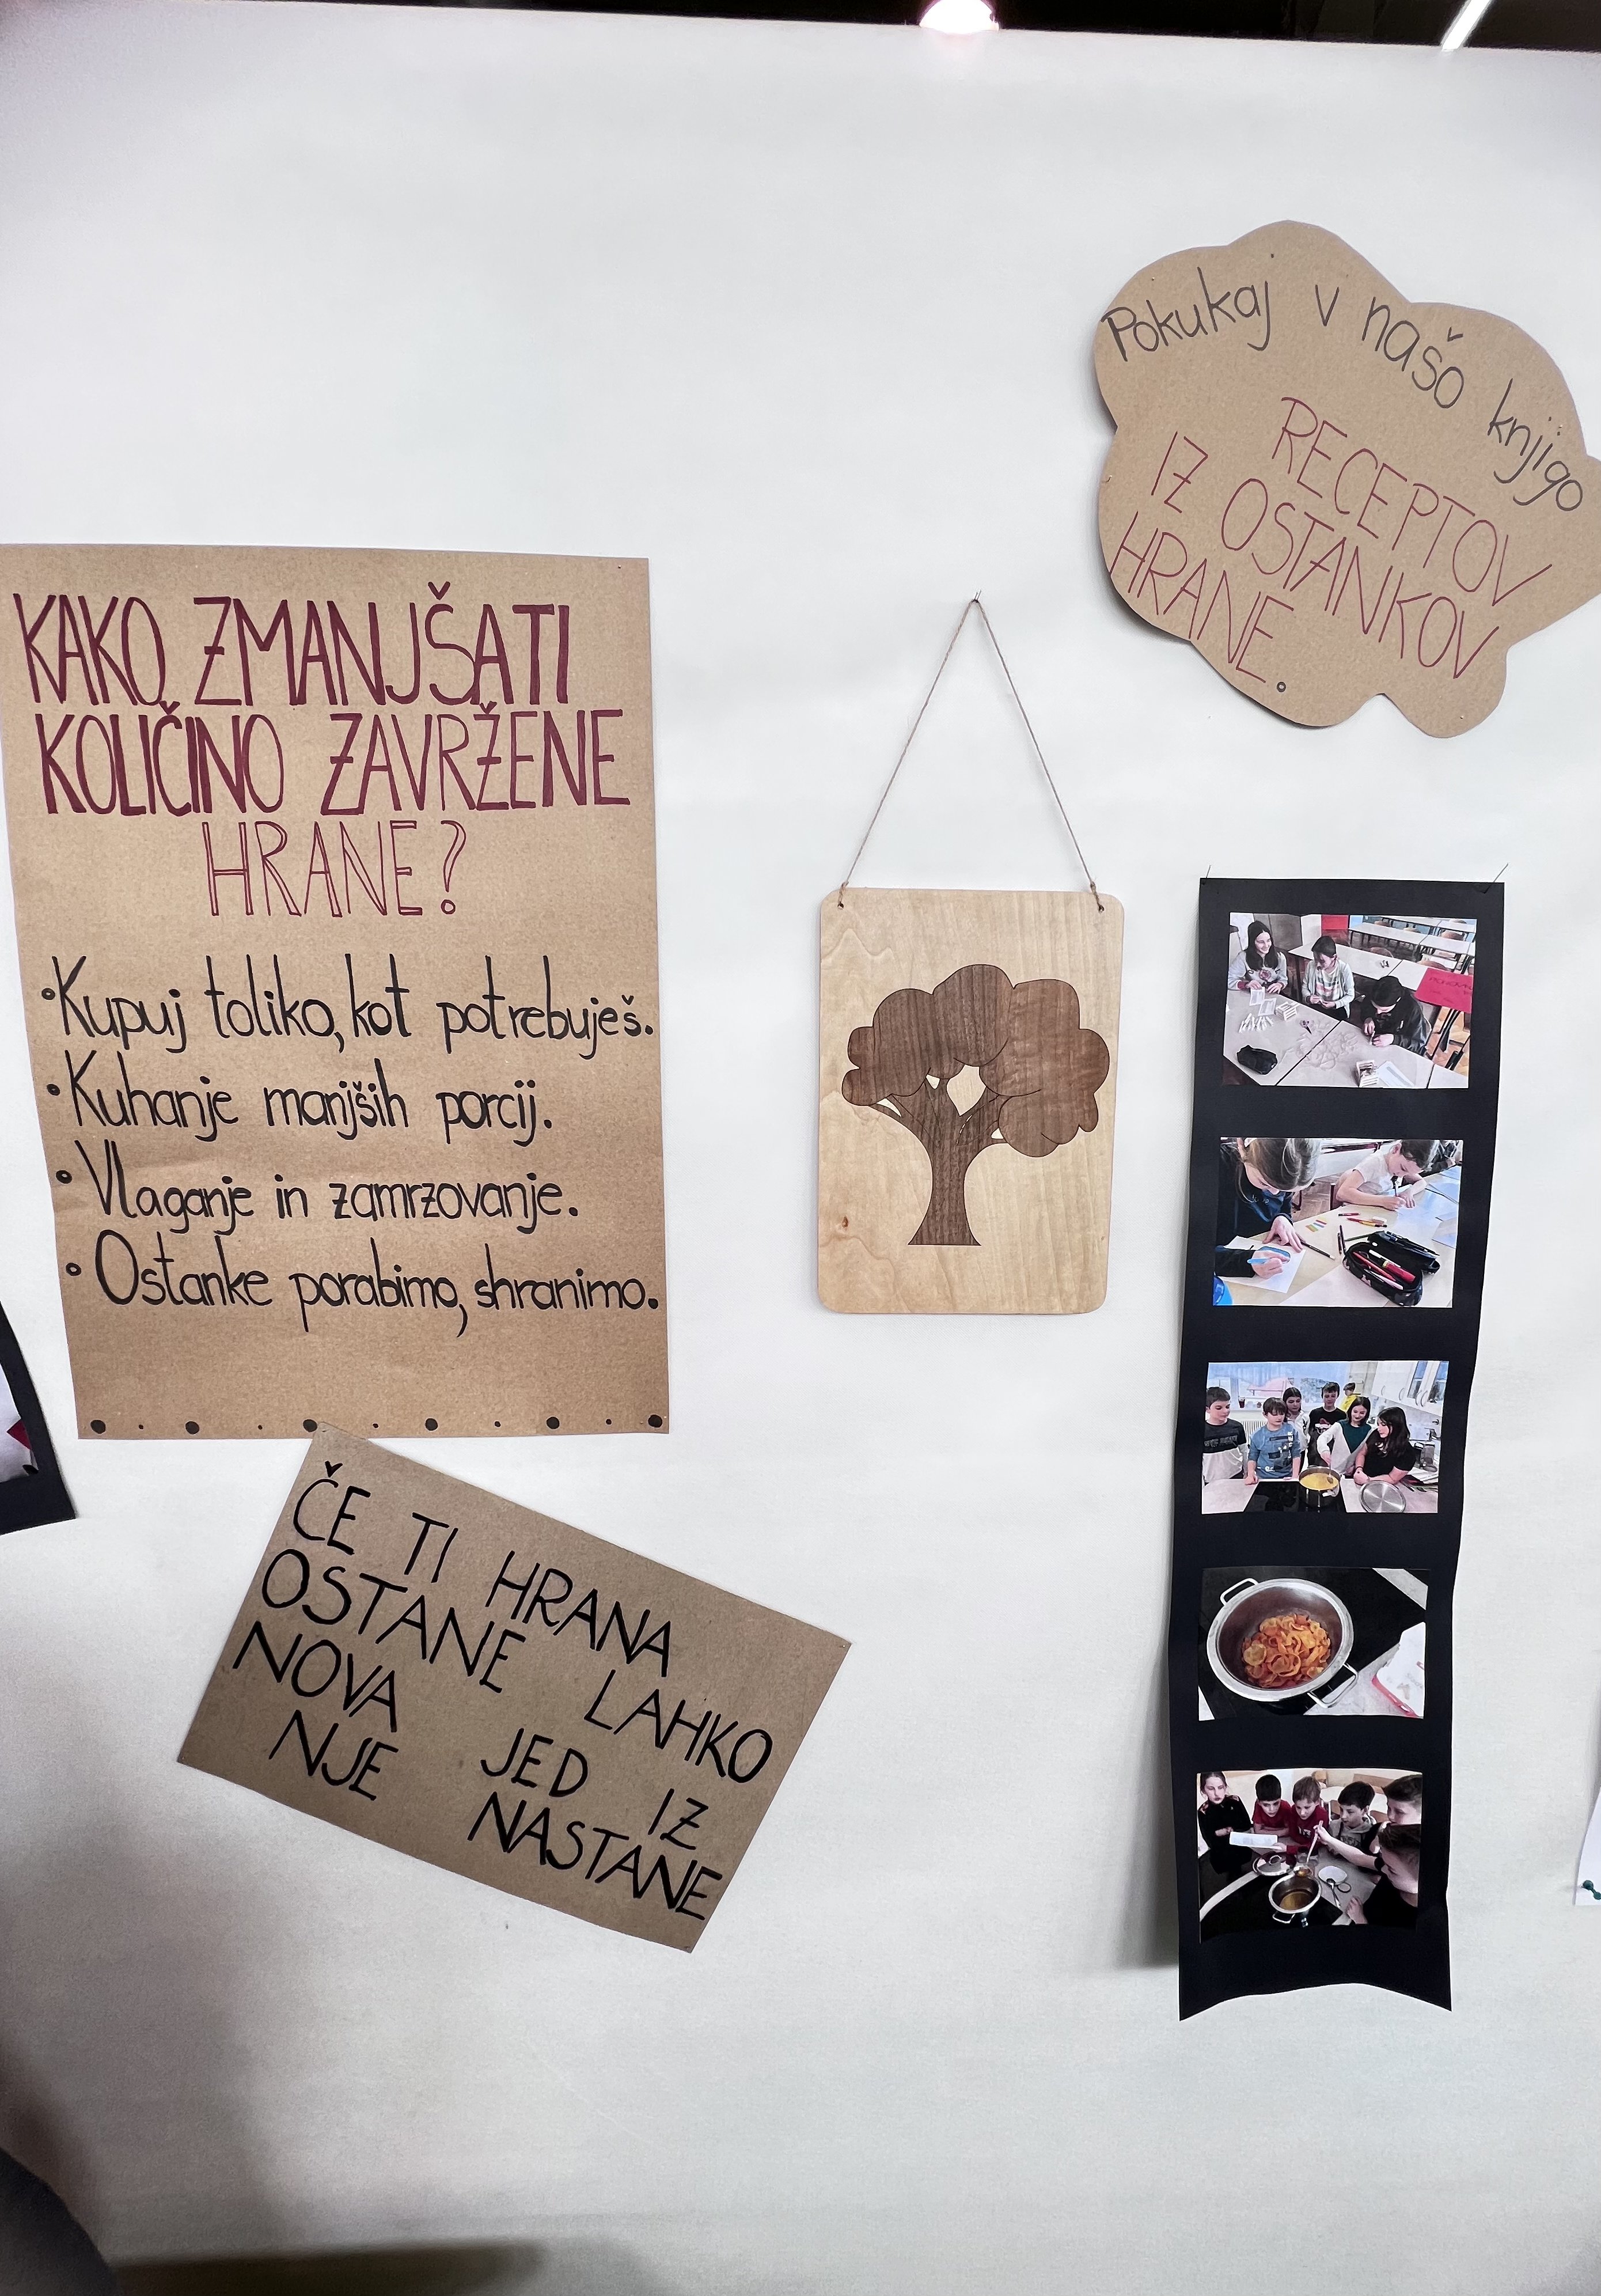 KAKO ZMANJŠATI
KOLIČINO ZAVRŽENE
HRANE?
Kupuj toliko, kot potrebuješ.
Kuhanje manjših porcij.
Vlaganje in zamrzovanje.
Ostanke porabimo, shranimo.
ČE TI HRANA
OSTANE LAHKO
NOVA JED IZ
NJE NASTANE
Pokukaj v našo knjigo
RECEPTOV
IZ OSTANKOV
HRANE.